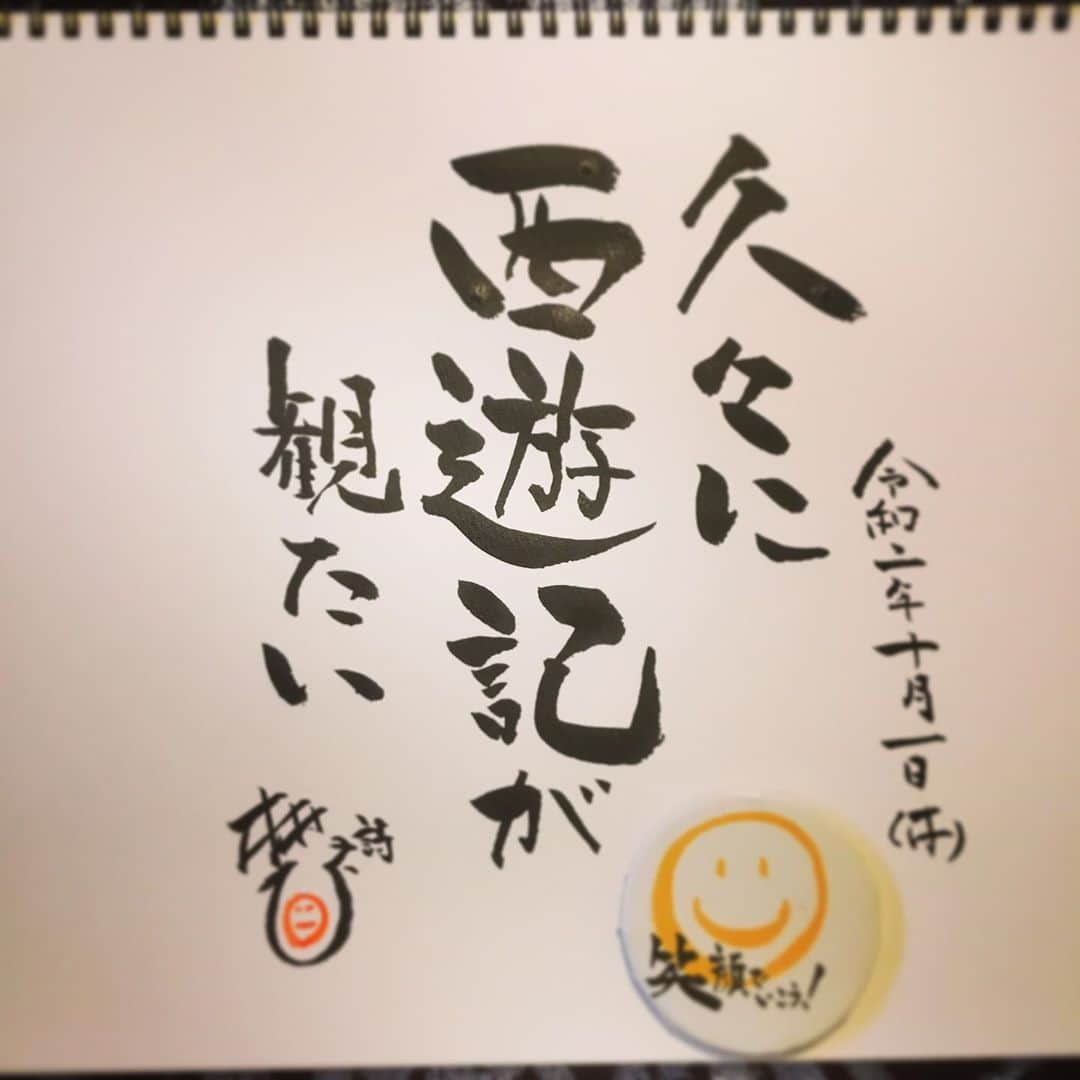 令和二年十月一日
久々に
西遊記が
観たい
詩
笑顔でいこう!